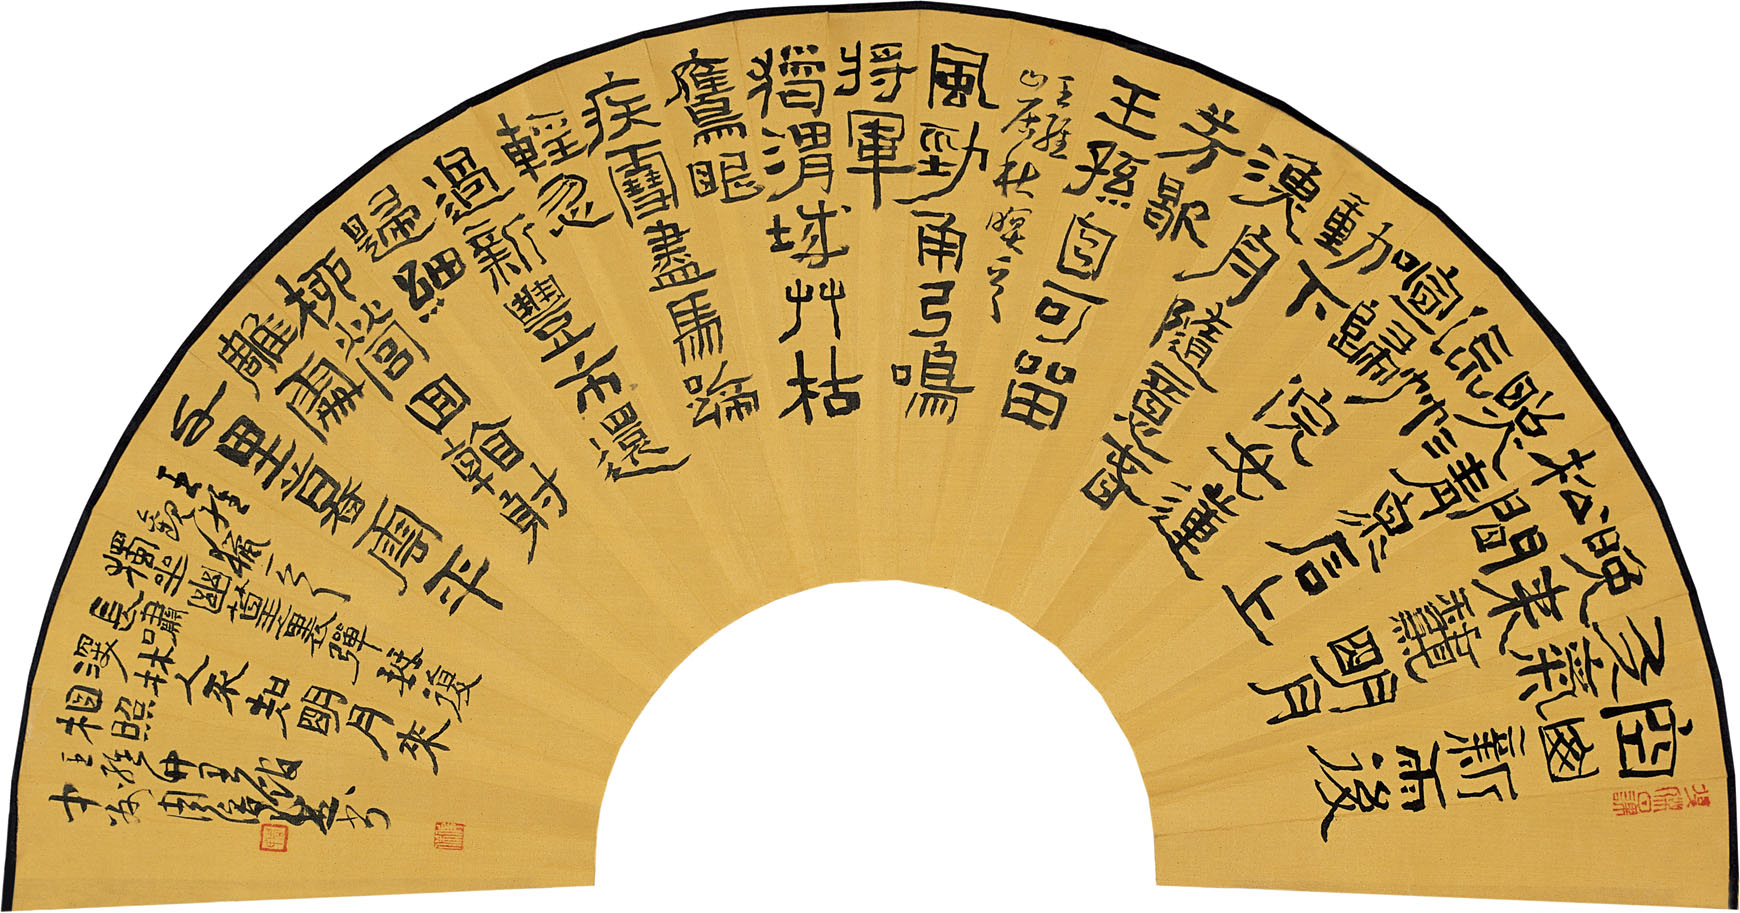 空山新雨後
天氣
晚來龝明月
松間
照清泉石上
流竹
喧歸浣女蓮
動下
漁舟隨意春
芳歇
王孫自可留
王維
山居秋暝
風勁角弓鳴
將軍
獵渭城艸枯
鷹眼
疾雪盡馬蹄
輕忽
過新豐市還
歸細
柳營回看射
雕處
千里暮雲平
王維
觀獵一首
獨坐幽篁裏彈琴復
長嘯
深林人不知明月來
相照
王維竹里館